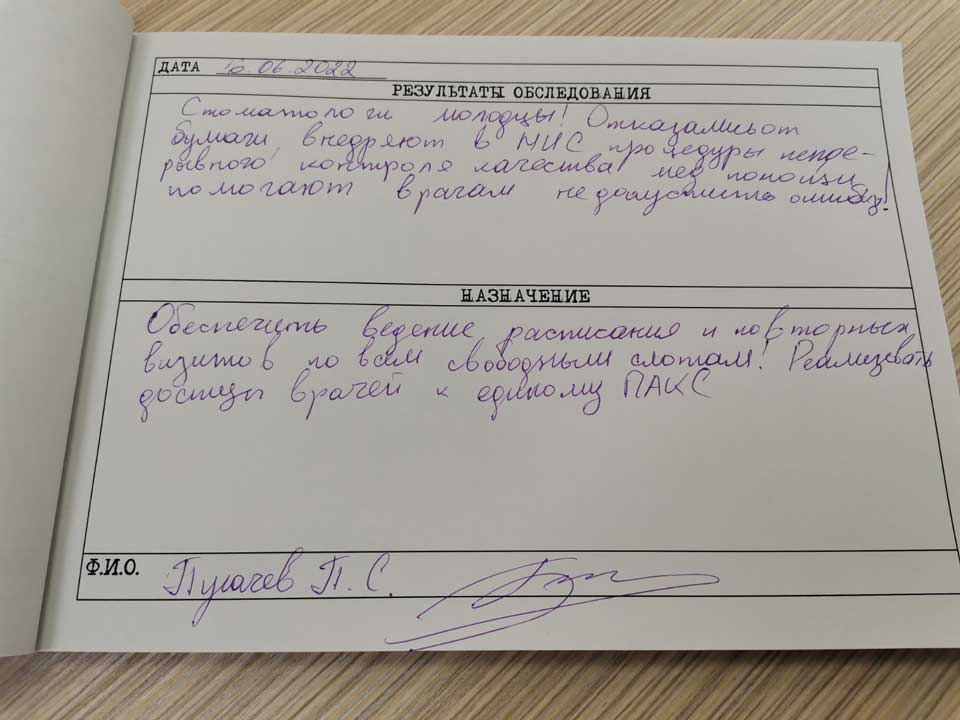 ДАТА 16.06.2022
РЕЗУЛЬТАТЫ ОБСЛЕДОВАНИЯ
Стоматологи молодцы! Отказались от
бумаги, внедряют в МИС процедуры непре-
рывного контроля качества мед помощи,
помогают врачам не допустить ошибку!
НАЗНАЧЕНИЕ
Обеспечить ведение расписания и повторных
визитов по всем свободным слотам! Реализовать
доступы врачей к единому ПАКС
Ф.И.О. Пугачев П. С.